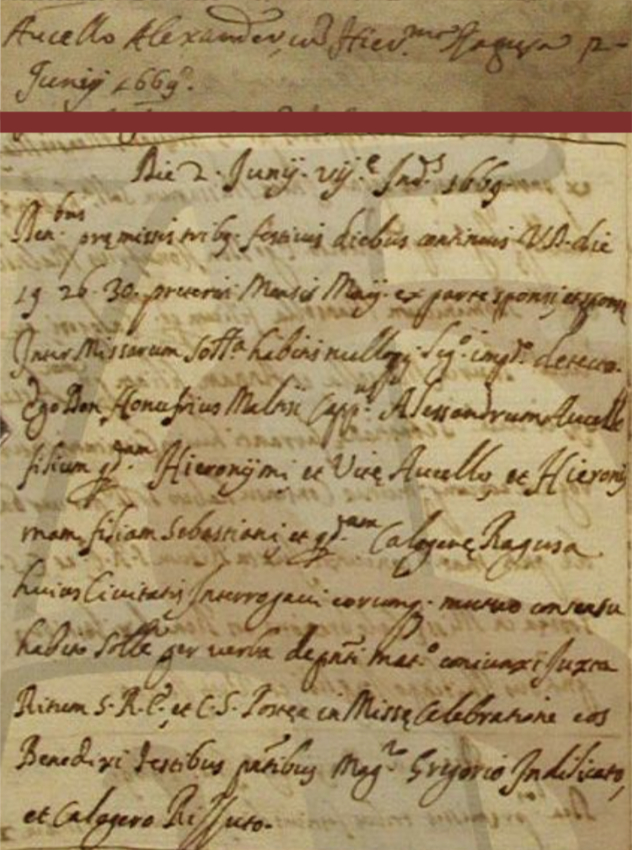 Aucello Alexander, cũ Hier.ma Ragusa 2
Junij 1669.
Die 2. Junij. vij.e Ind.s 1669
Den.bus premissis tribq. festivis diebus continuis V.D. die
19 26. 30. preteriti Mensis Maij. ex parte sponsi, et sponse
Inter Missarum soll.a habitis nulloq. leg.o imp.to detecto.
Ego Don Honufrius Maltisi Capp.s Alessandrum Aucello
filium qd.am Hieronijmi et Vite Aucello, et Hieronij
mam, filiam Sebastiani et qd.am Calogere Ragusa
huius Civitatis Interrogavi eorumq. mutuo consensu
habito Solle.r per verba de pnti mat.o coniunxi Juxta
Ritum S. R. E. et C. S. Postea in Misse Celebratione eos
Benedixi Testibus pntibus Mag.ro Grigorio Indilicato,
et Calogero Rissuto.